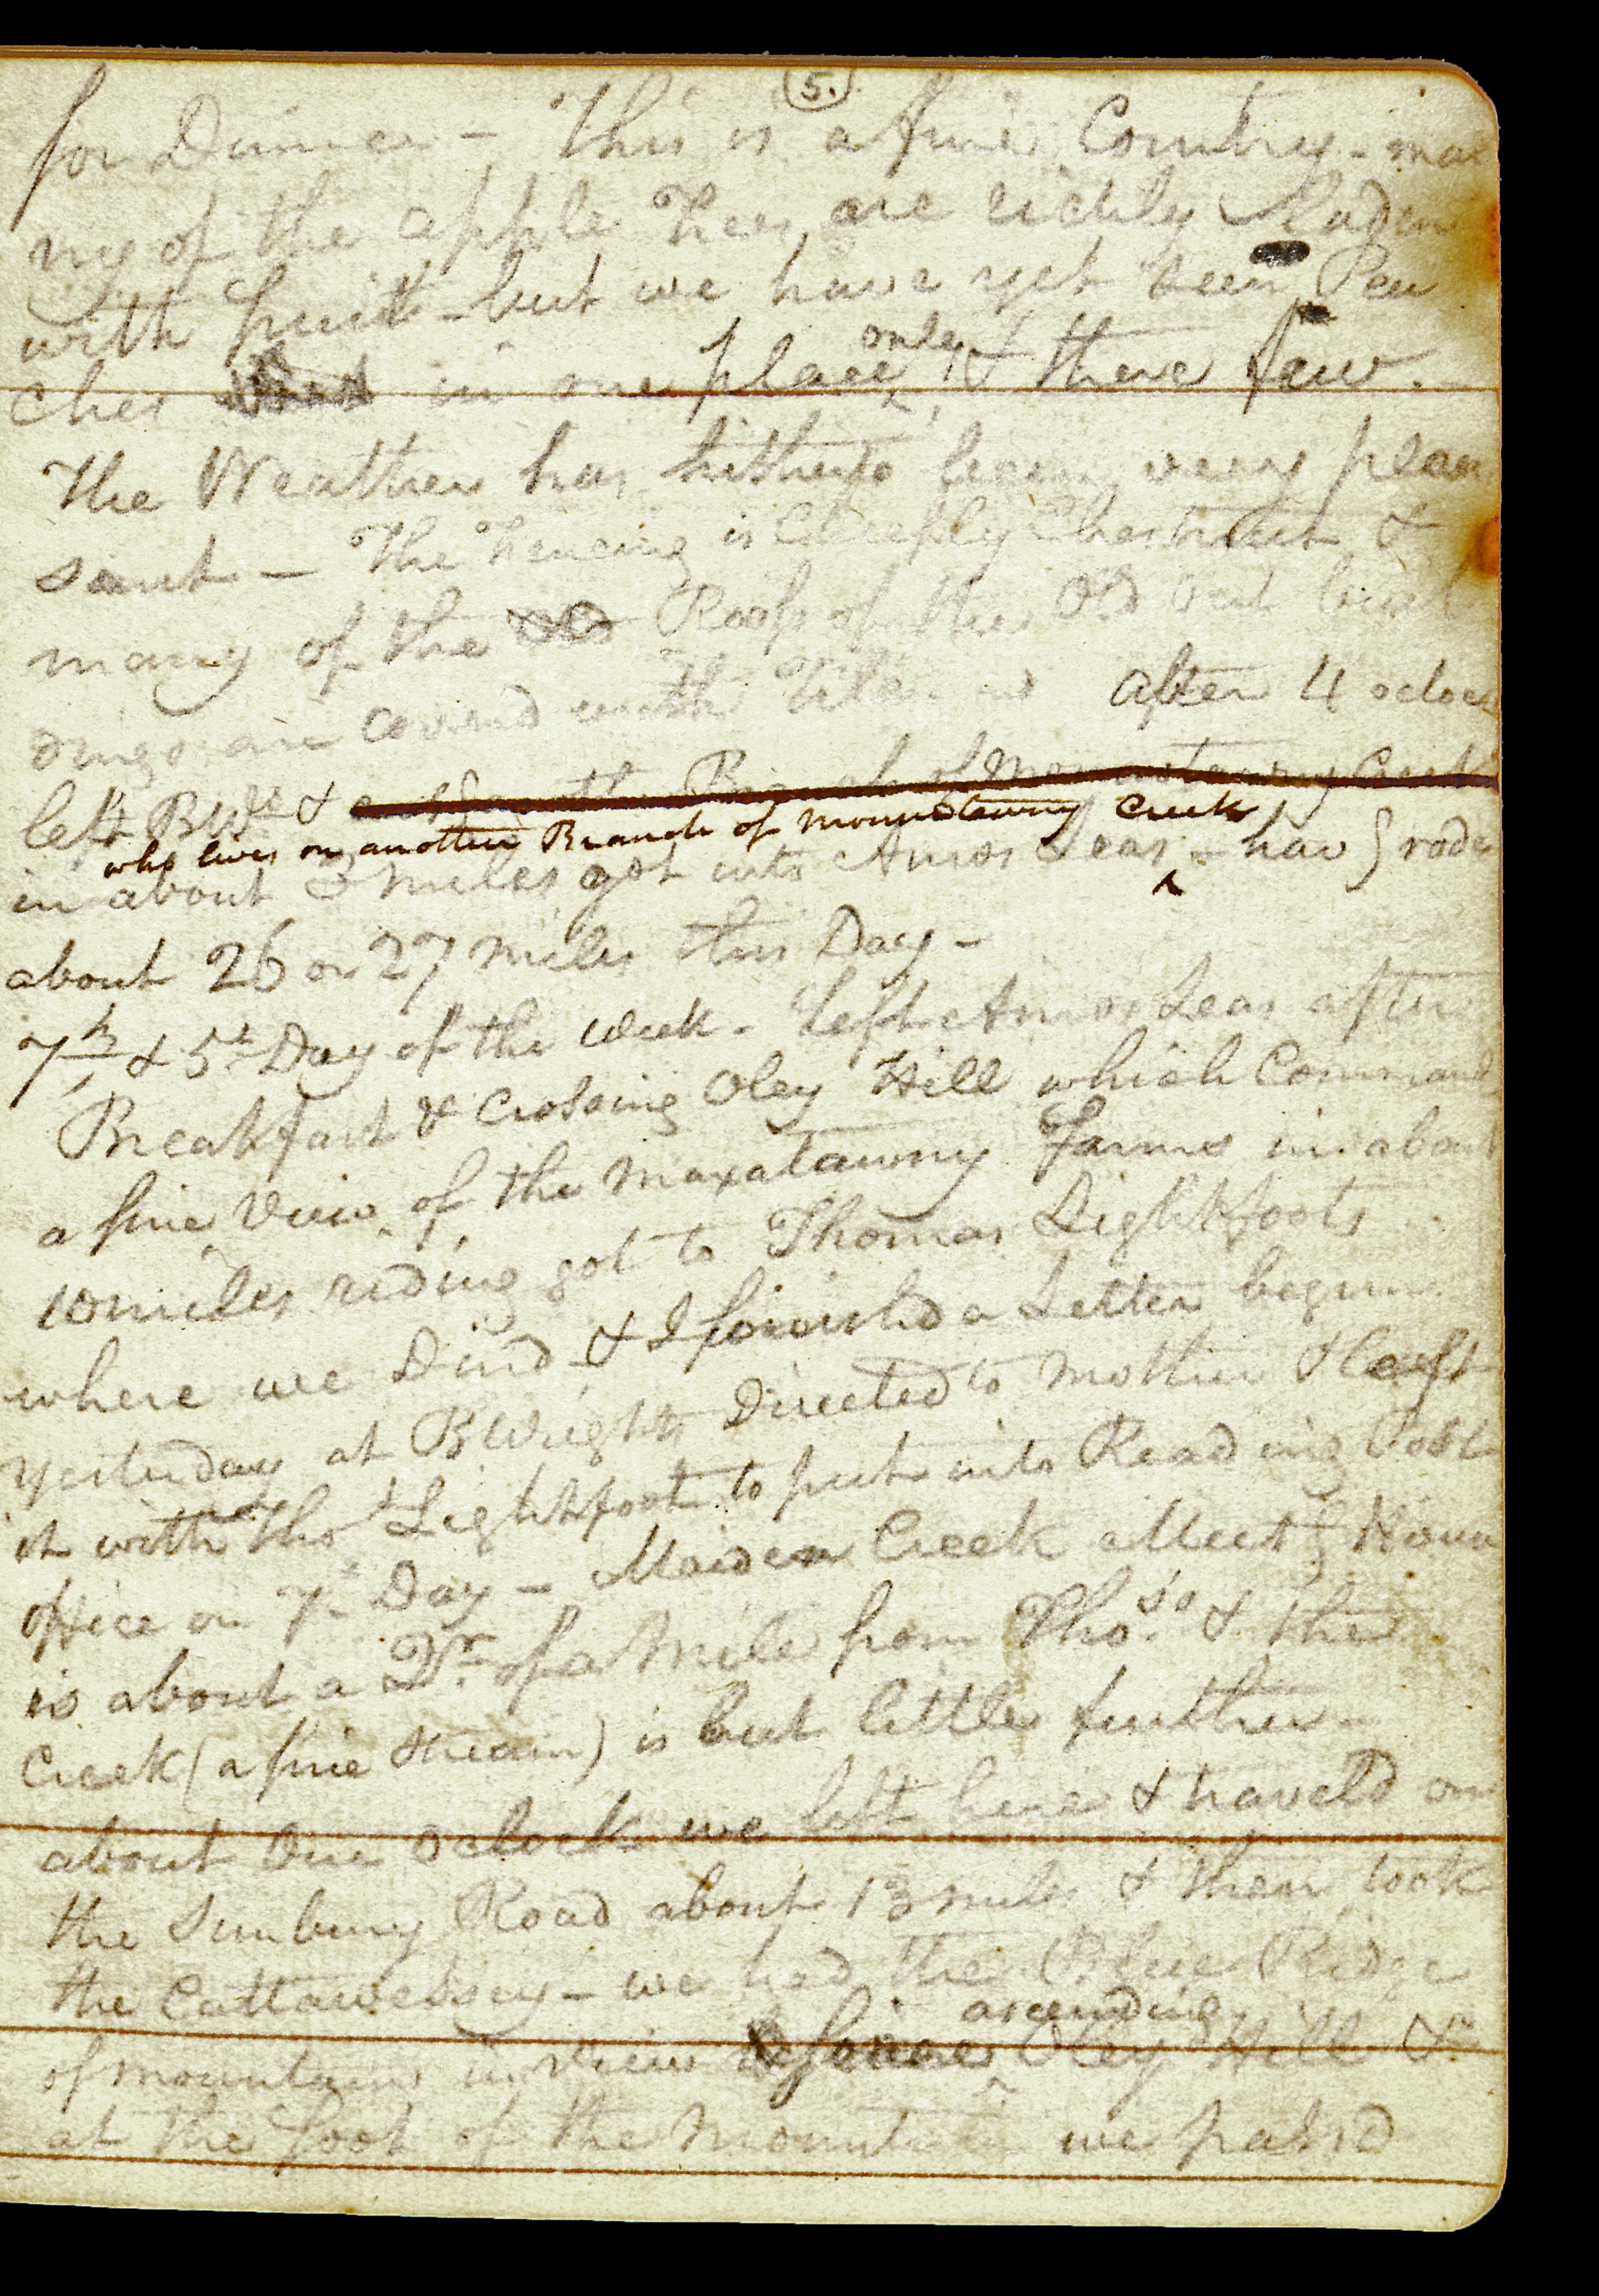 5.
for Dinner - This is a fine Country - ma
ny of the apple Trees are richly Laden
with fruit - but we have yet seen Pea
ches in one place only & there few.
The Weather has hitherto been very plea
sant - The Fencing is Chiefly Chestnut &
many of the Old Roofs of the Old Out buil
dings are coverd with Tile. after 4 oclock
left B Wts & cross another Branch of Monnotawny Creek
who lives on another Branch of Monnotawny Creek
in about 3 miles got into Amos Lears - havg rode
about 26 or 27 miles this Day -
7th & 5th Day of the week - left Amos Lears after
Breakfast & Crossing Oley Hill which Commands
a fine View of the Maxatawny Farms in about
10 miles riding got to Thomas Lightfoots
where we Dind & I finishd a Letter begun
yesterday at B Wrights Directed to Mother & left
it with Thos Lightfoot to put into Reading Post
office on 7th Day - Maiden Creek Meetg House
is about a Qr. of a Mile from Thos. & the
Creek (a fine stream) is but little further -
about One Oclock we left here & traveld on
the Sunbury Road about 13 miles & then took
the Cattawessey - we had the Blue Ridge
of mountains in View ascending Oley Hill &
at the foot of the Mountain we passd